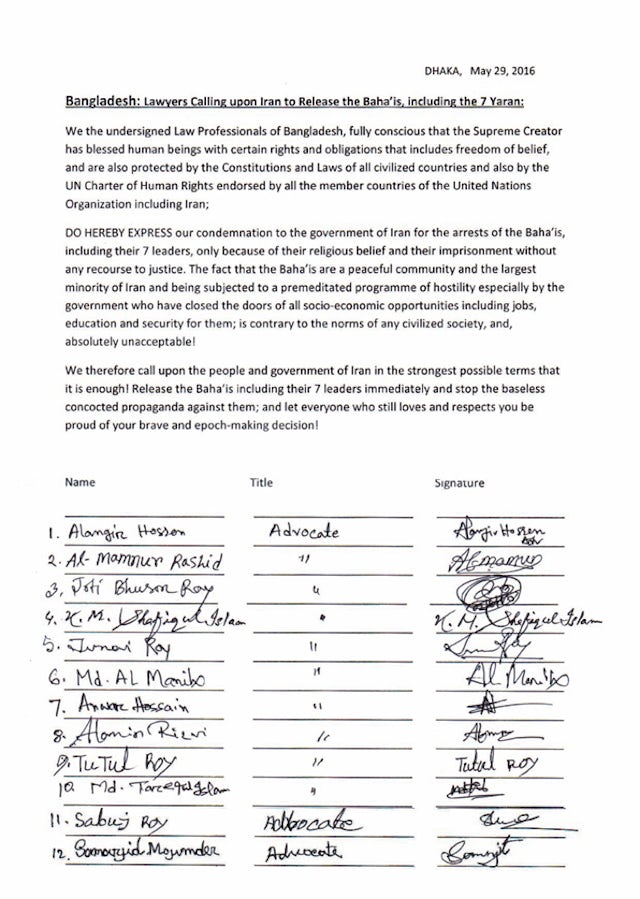 DHAKA, May 29, 2016
Bangladesh: Lawyers Calling upon Iran to Release the Baha'is, including the 7 Yaran:
We the undersigned Law Professionals of Bangladesh, fully conscious that the Supreme Creator
has blessed human beings with certain rights and obligations that includes freedom of belief,
and are also protected by the Constitutions and Laws of all civilized countries and also by the
UN Charter of Human Rights endorsed by all the member countries of the United Nations
Organization including Iran;
DO HEREBY EXPRESS our condemnation to the government of Iran for the arrests of the Baha'is,
including their 7 leaders, only because of their religious belief and their imprisonment without
any recourse to justice. The fact that the Baha'is are a peaceful community and the largest
minority of Iran and being subjected to a premeditated programme of hostility especially by the
government who have closed the doors of all socio-economic opportunities including jobs,
education and security for them; is contrary to the norms of any civilized society, and,
absolutely unacceptable!
We therefore call upon the people and government of Iran in the strongest possible terms that
it is enough! Release the Baha'is including their 7 leaders immediately and stop the baseless
concocted propaganda against them; and let everyone who still loves and respects you be
proud of your brave and epoch-making decision!
Name Title Signature
1. Alangir Hossen Advocate
2. Al-Mamnur Rashid "
3. Joti Bhuson Roy "
4. K. M. Shafiqul Islam " K. M. Shefiqul Islam
5. Roy "
6. Md. AL Manibo " Al Manibo
7. Anwar Hossain "
8. Alamin "
9. TUTUL ROY " Tutul ROY
10. Md. Tarequl Islam "
11. Sabuj Roy Adbocate
12. Advocate